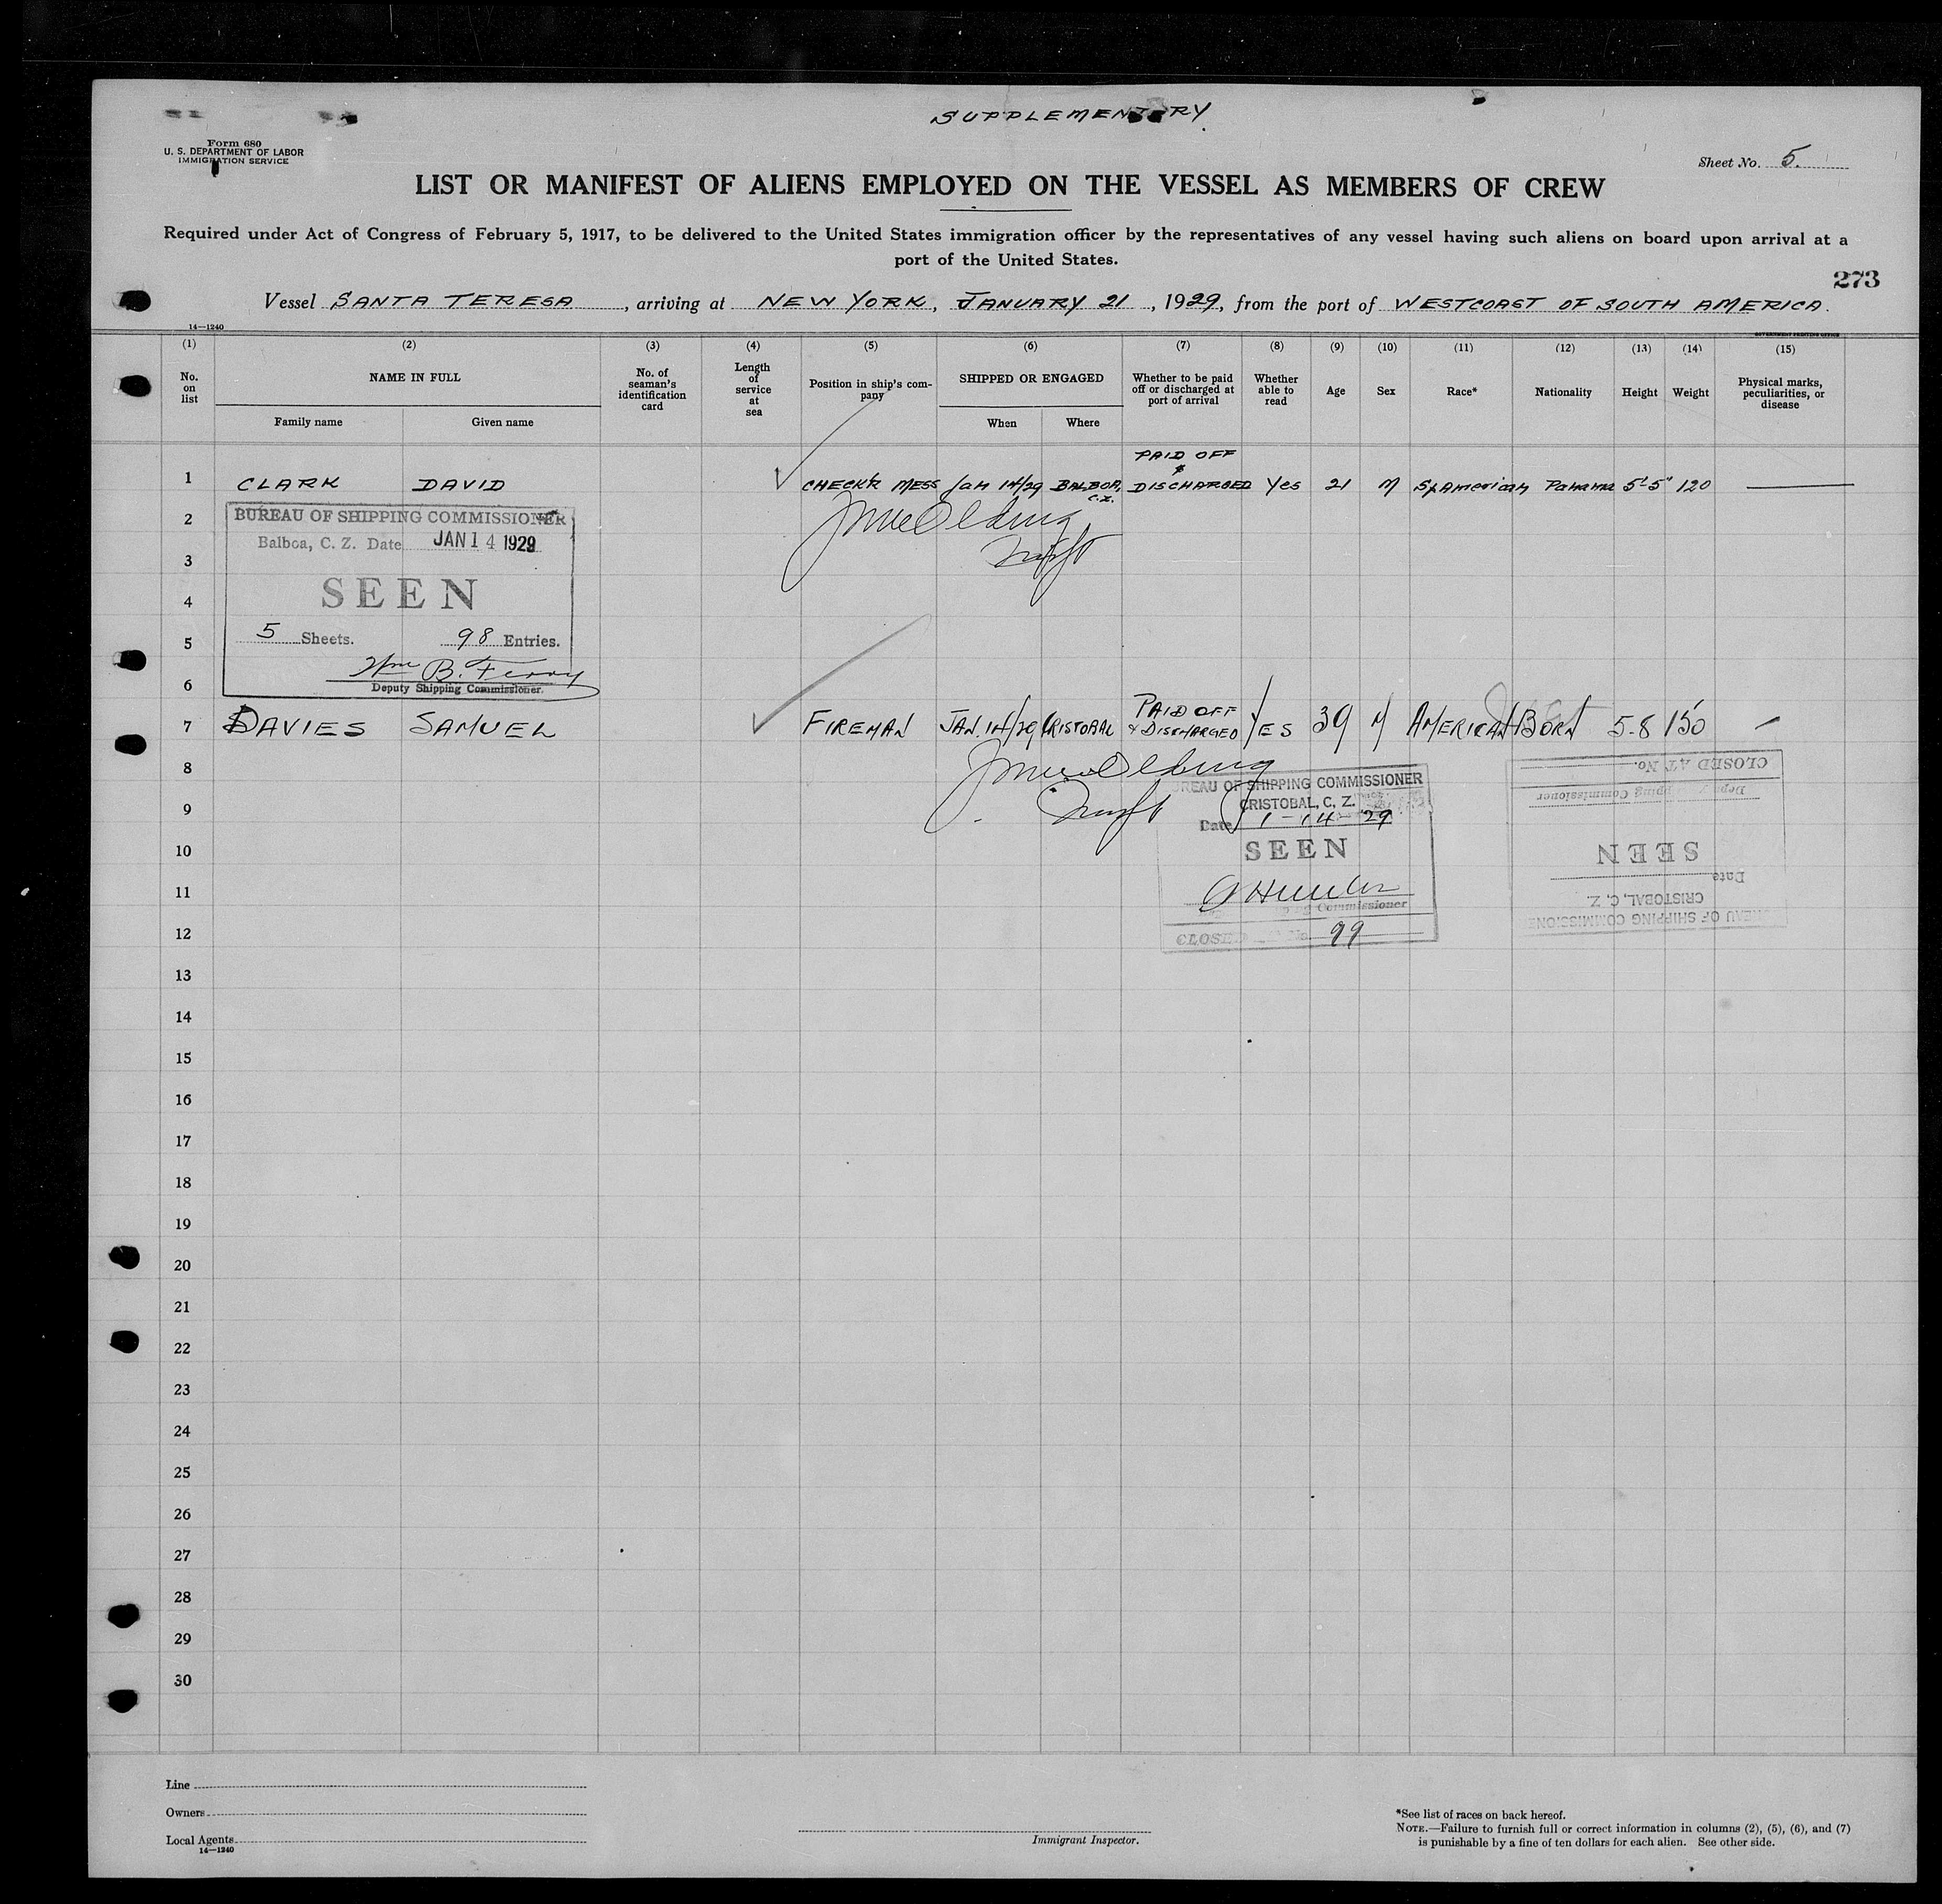 SUPPLEMENTARY
Form 680
U. S. DEPARTMENT OF LABOR
IMMIGRATION SERVICE
Sheet No. 5.
LIST OR MANIFEST OF ALIENS EMPLOYED ON THE VESSEL AS MEMBERS OF CREW
Required under Act of Congress of February 5, 1917, to be delivered to the United States immigration officer by the representatives of any vessel having such aliens on board upon arrival at a
port of the United States.
273
Vessel SANTA TERESA, arriving at NEW YORK, JANUARY 21, 1929, from the port of WESTCOAST OF SOUTH AMERICA.
14—1240
GOVERNMENT PRINTING OFFICE
(1) (2) (3) (4) (5) (6) (7) (8) (9) (10) (11) (12) (13) (14) (15)
No. on list
NAME IN FULL
Family name Given name
No. of seaman's identification card
Length of service at sea
Position in ship's company
SHIPPED OR ENGAGED
When Where
Whether to be paid off or discharged at port of arrival
Whether able to read
Age
Sex
Race*
Nationality
Height
Weight
Physical marks, peculiarities, or disease
1 CLARK DAVID CHECK'R MESS Jan 14/29 BALBOA, C.Z. PAID OFF & DISCHARGED Yes 21 M Sp American Panama 5'-5" 120
2
3
4
5
6
BUREAU OF SHIPPING COMMISSIONER
Balboa, C. Z. Date JAN 14 1929
SEEN
5 Sheets. 98 Entries.
Wm B. Ferry
Deputy Shipping Commissioner.
7 DAVIES SAMUEL FIREMAN JAN. 14/29 CRISTOBAL PAID OFF & DISCHARGED YES 39 M AMERICAN BORN 5-8 150
8
9
10
11
12
BUREAU OF SHIPPING COMMISSIONER
CRISTOBAL, C. Z.
Date 1-14-29
SEEN
Commissioner
CLOSED No. 99
CLOSED AT No.
Shipping Commissioner
SEEN
Date
CRISTOBAL, C. Z.
BUREAU OF SHIPPING COMMISSIONER
13
14
15
16
17
18
19
20
21
22
23
24
25
26
27
28
29
30
Line
Owners
Local Agents
14—1240
Immigrant Inspector.
*See list of races on back hereof.
NOTE.—Failure to furnish full or correct information in columns (2), (5), (6), and (7)
is punishable by a fine of ten dollars for each alien. See other side.